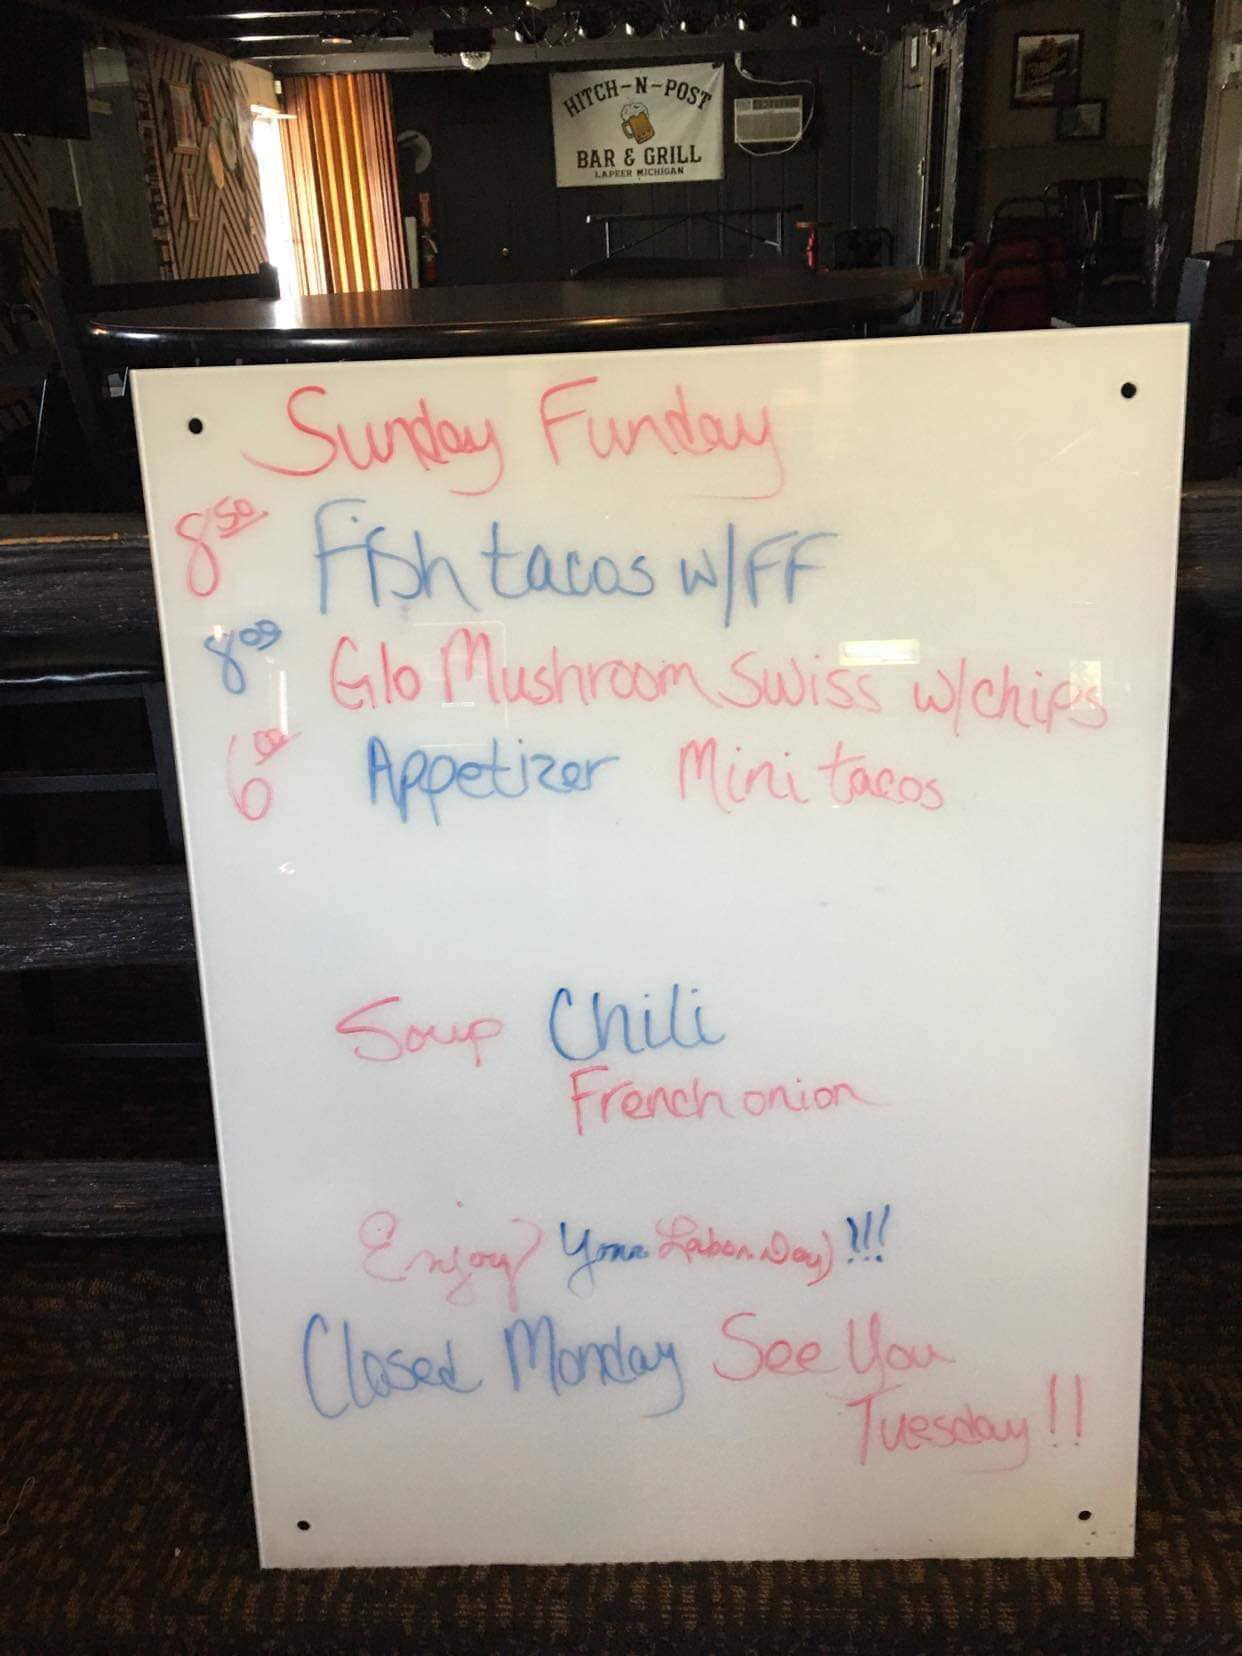 HITCH-N-POST
BAR & GRILL
LAPEER MICHIGAN
Sunday Funday
8.50 Fish tacos w/FF
8.00 Glo Mushroom Swiss w/chips
6.00 Appetizer Mini tacos
Soup Chili
French onion
Enjoy Your Labor Day!!!
Closed Monday See You
Tuesday!!